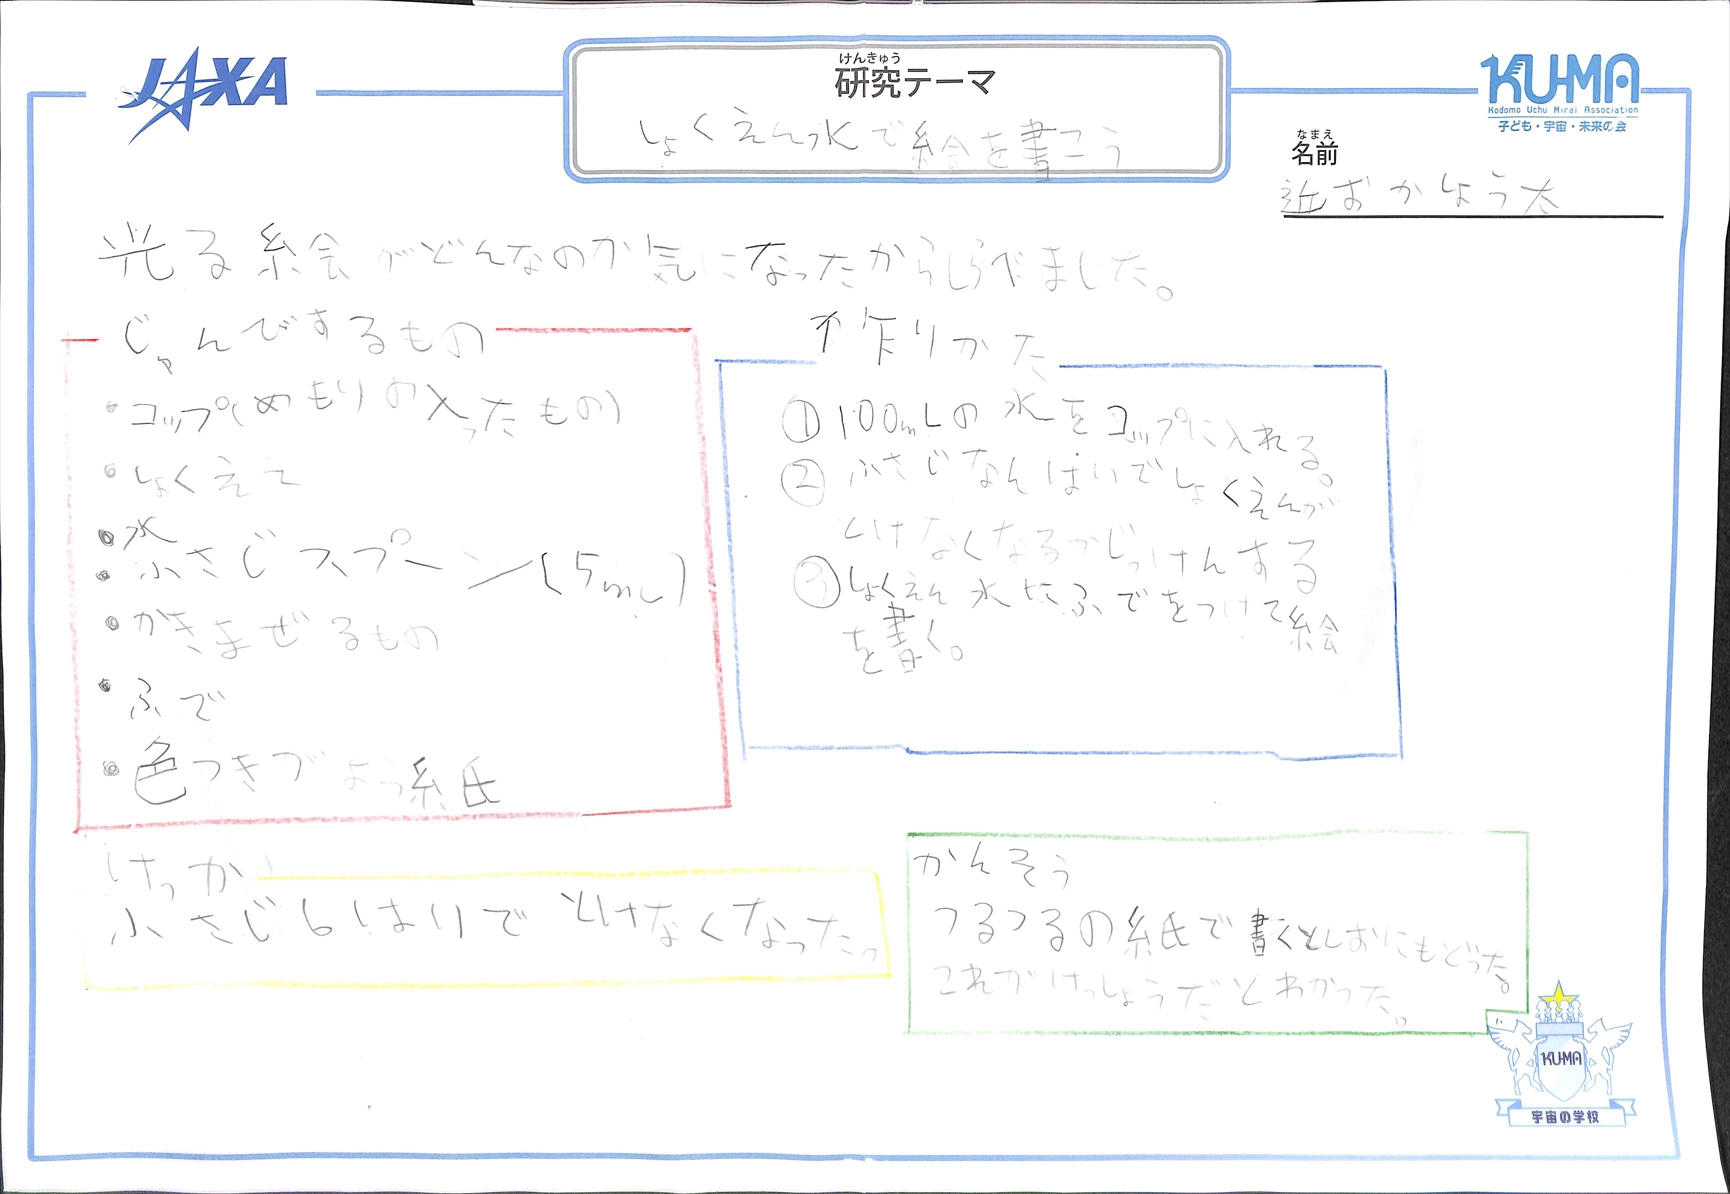 JAXA
けんきゅう
研究テーマ
しょくえん水で絵を書こう
KU-MA
Kodomo Uchu Mirai Association
子ども・宇宙・未来の会
なまえ
名前
近おかよう太
光る絵がどんなのか気になったからしらべました。
じゅんびするもの
・コップ(めもりの入ったもの)
・しょくえん
・水
・小さじスプーン(5mL)
・かきまぜるもの
・ふで
・色つきがようし紙
作りかた
①100mLの水をコップに入れる。
②小さじなんばいでしょくえんが
とけなくなるかじっけんする
③しょくえん水にふでをつけて絵
を書く。
けっか
小さじ6ぱいでとけなくなった。
かんそう
つるつるの紙で書くとしおにもどった。
これがけっしょうだとわかった。
KU-MA
宇宙の学校